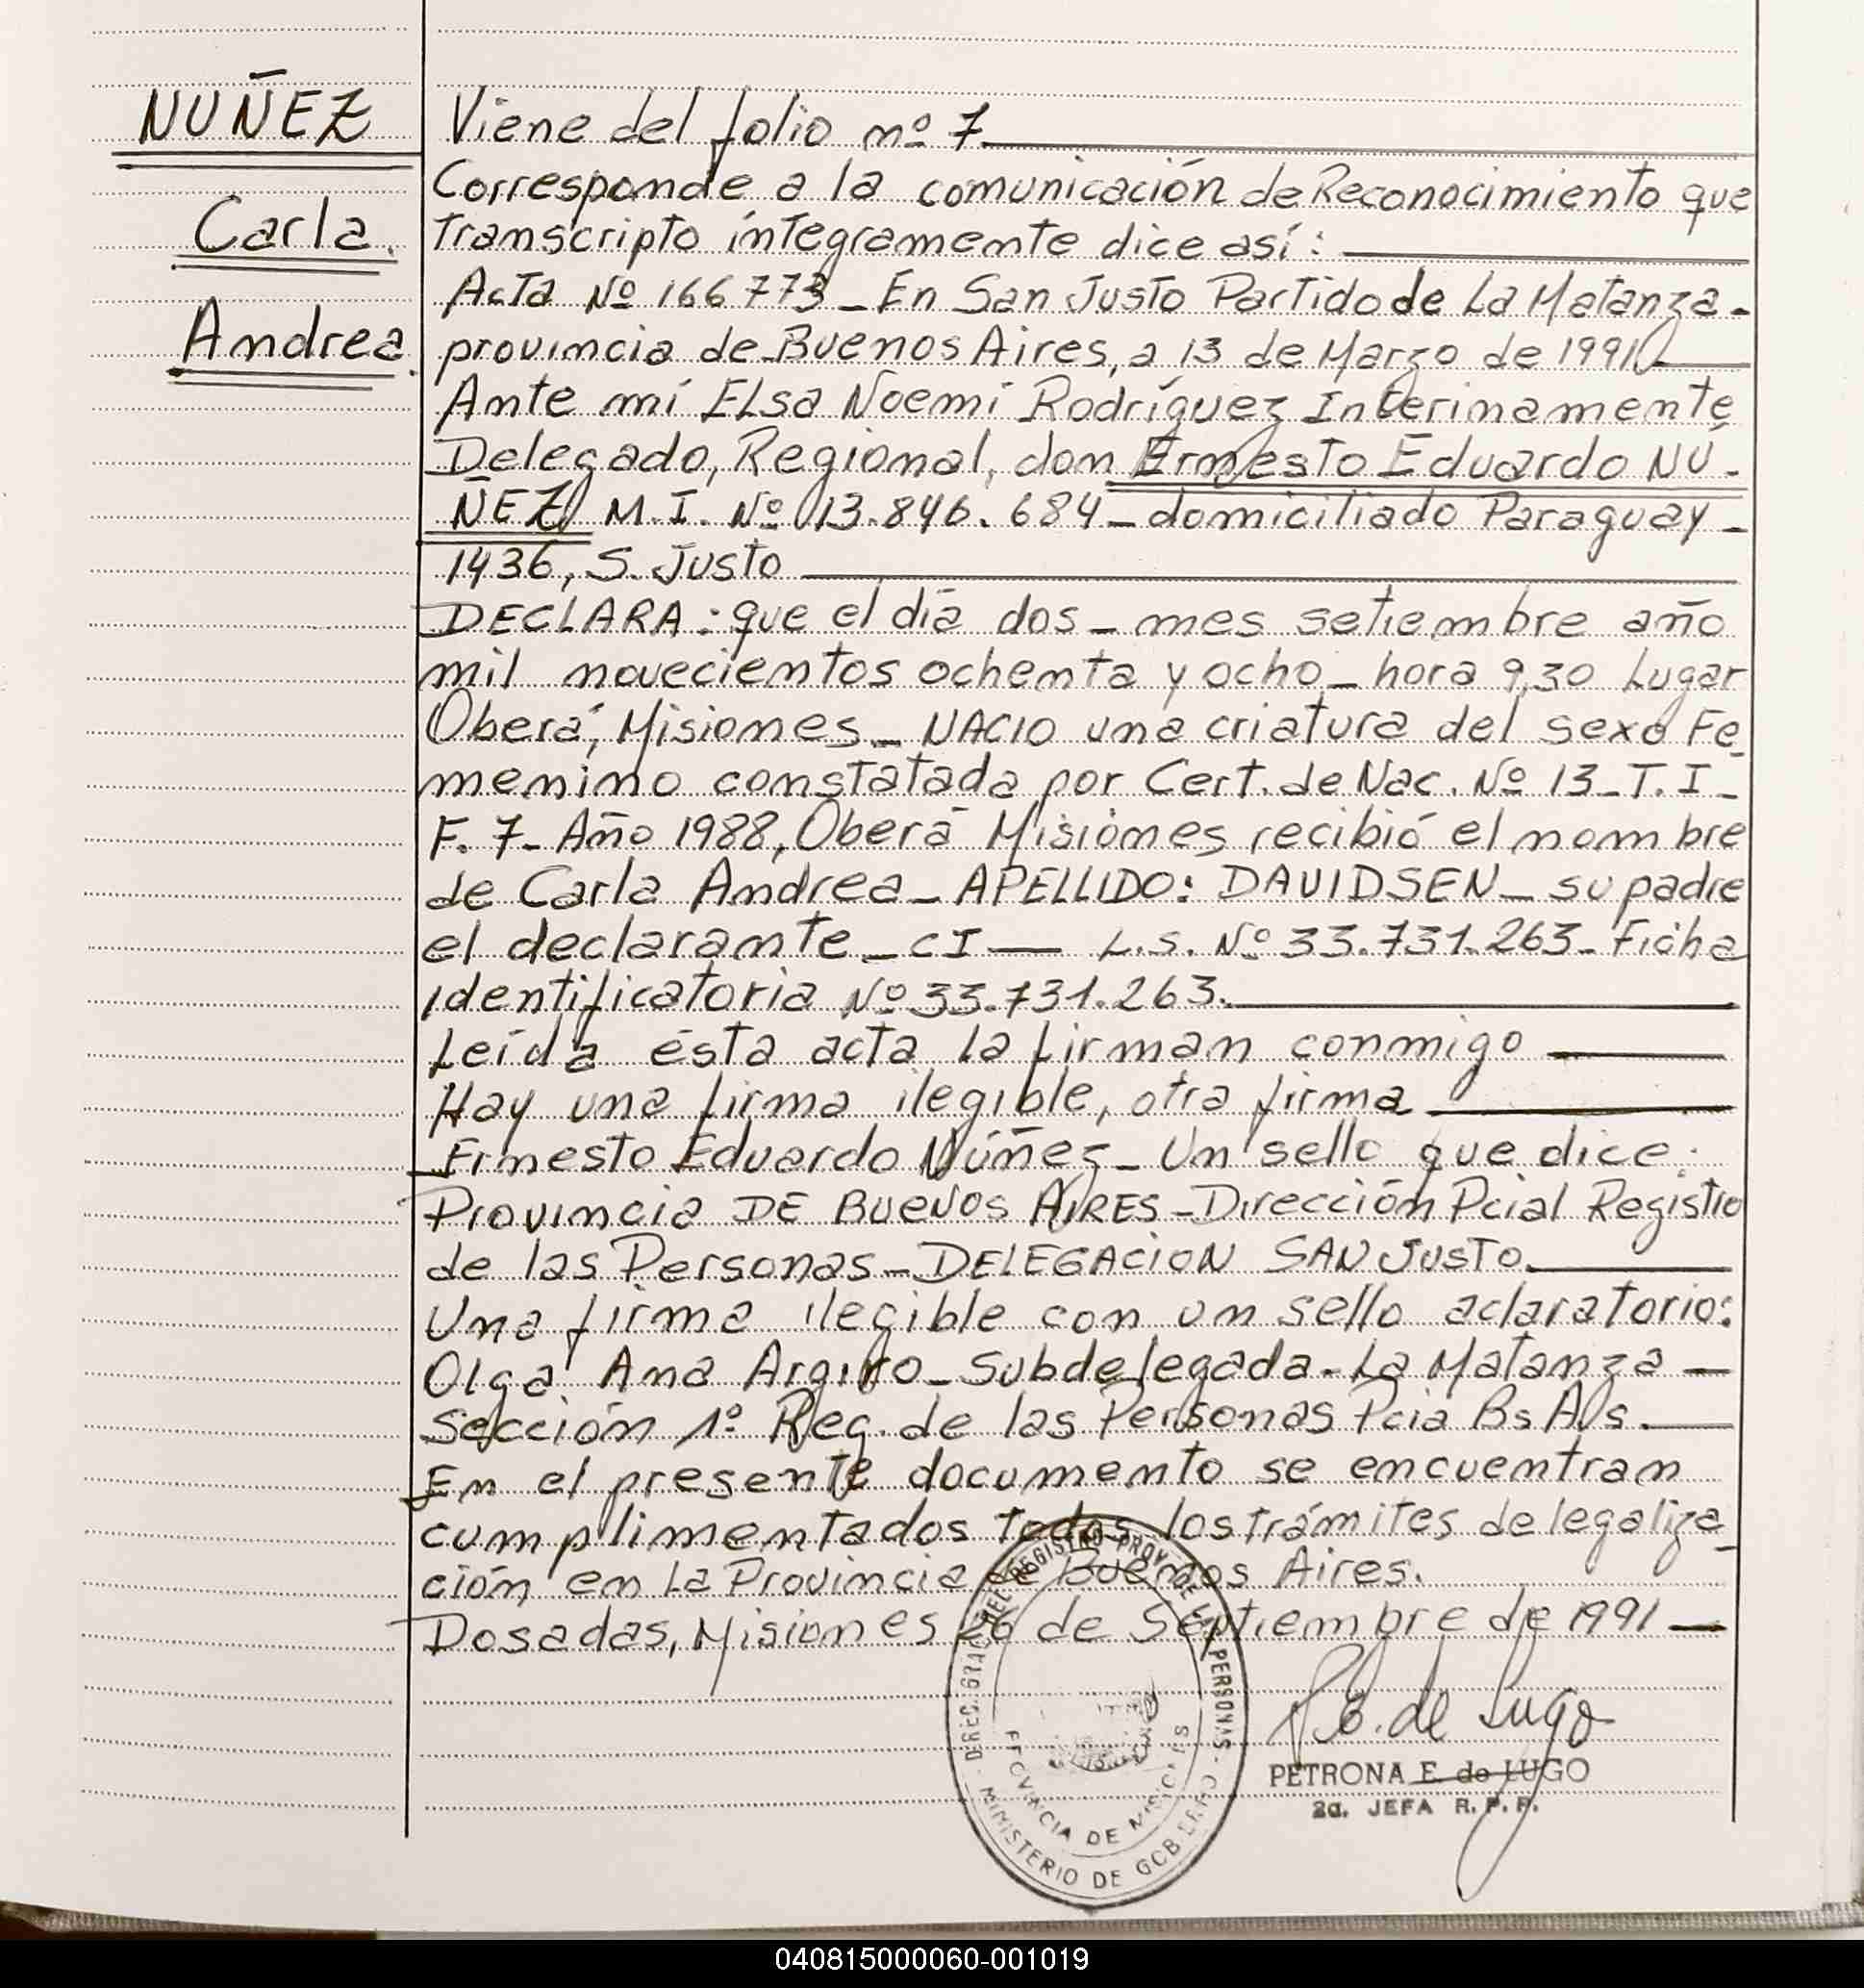 NUÑEZ
Carla.
Andrea.
Viene del folio nº 7
Corresponde a la comunicación de Reconocimiento que
transcripto íntegramente dice así:
Acta Nº 166773 _ En San Justo Partido de La Matanza -
provincia de Buenos Aires, a 13 de Marzo de 1991
Ante mí ELsa Noemí Rodríguez Interinamente
Delegado, Regional, don Ernesto Eduardo NÚ-
ÑEZ M.I. Nº 13.846.684 _ domiciliado Paraguay -
1436, S. Justo
DECLARA: que el día dos _ mes setiembre año
mil novecientos ochenta y ocho _ hora 9,30 Lugar
Oberá, Misiones _ NACIO una criatura del sexo Fe_
menino constatada por Cert. de Nac. Nº 13 _ T. I _
F. 7 - Año 1988, Oberá Misiones recibió el nombre
de Carla Andrea _ APELLIDO: DAVIDSEN _ su padre
el declarante _ CI — L.S. Nº 33.731.263 _ Ficha
identificatoria Nº 33.731.263.
Leída ésta acta la firman conmigo
Hay una firma ilegible, otra firma
Ernesto Eduardo Núñez _ Un sello que dice:
Provincia DE BUENOS AIRES _ Dirección Pcial Registro
de las Personas _ DELEGACION SAN JUSTO.
Una firma ilegible con un sello aclaratorio:
Olga Ana _ Subdelegada - La Matanza —
Sección 1º Reg. de las Personas Pcia Bs As.
En el presente documento se encuentran
cumplimentados todos los trámites de legaliza_
ción en La Provincia de Buenos Aires.
Posadas, Misiones 26 de Septiembre de 1991 —
DIREC. GRAL. DEL REGISTRO PROV. DE LAS PERSONAS
PROVINCIA DE MISIONES
MINISTERIO DE GOBIERNO
P. E. de Lugo
PETRONA E. de LUGO
2a. JEFA R. P. P.
040815000060-001019